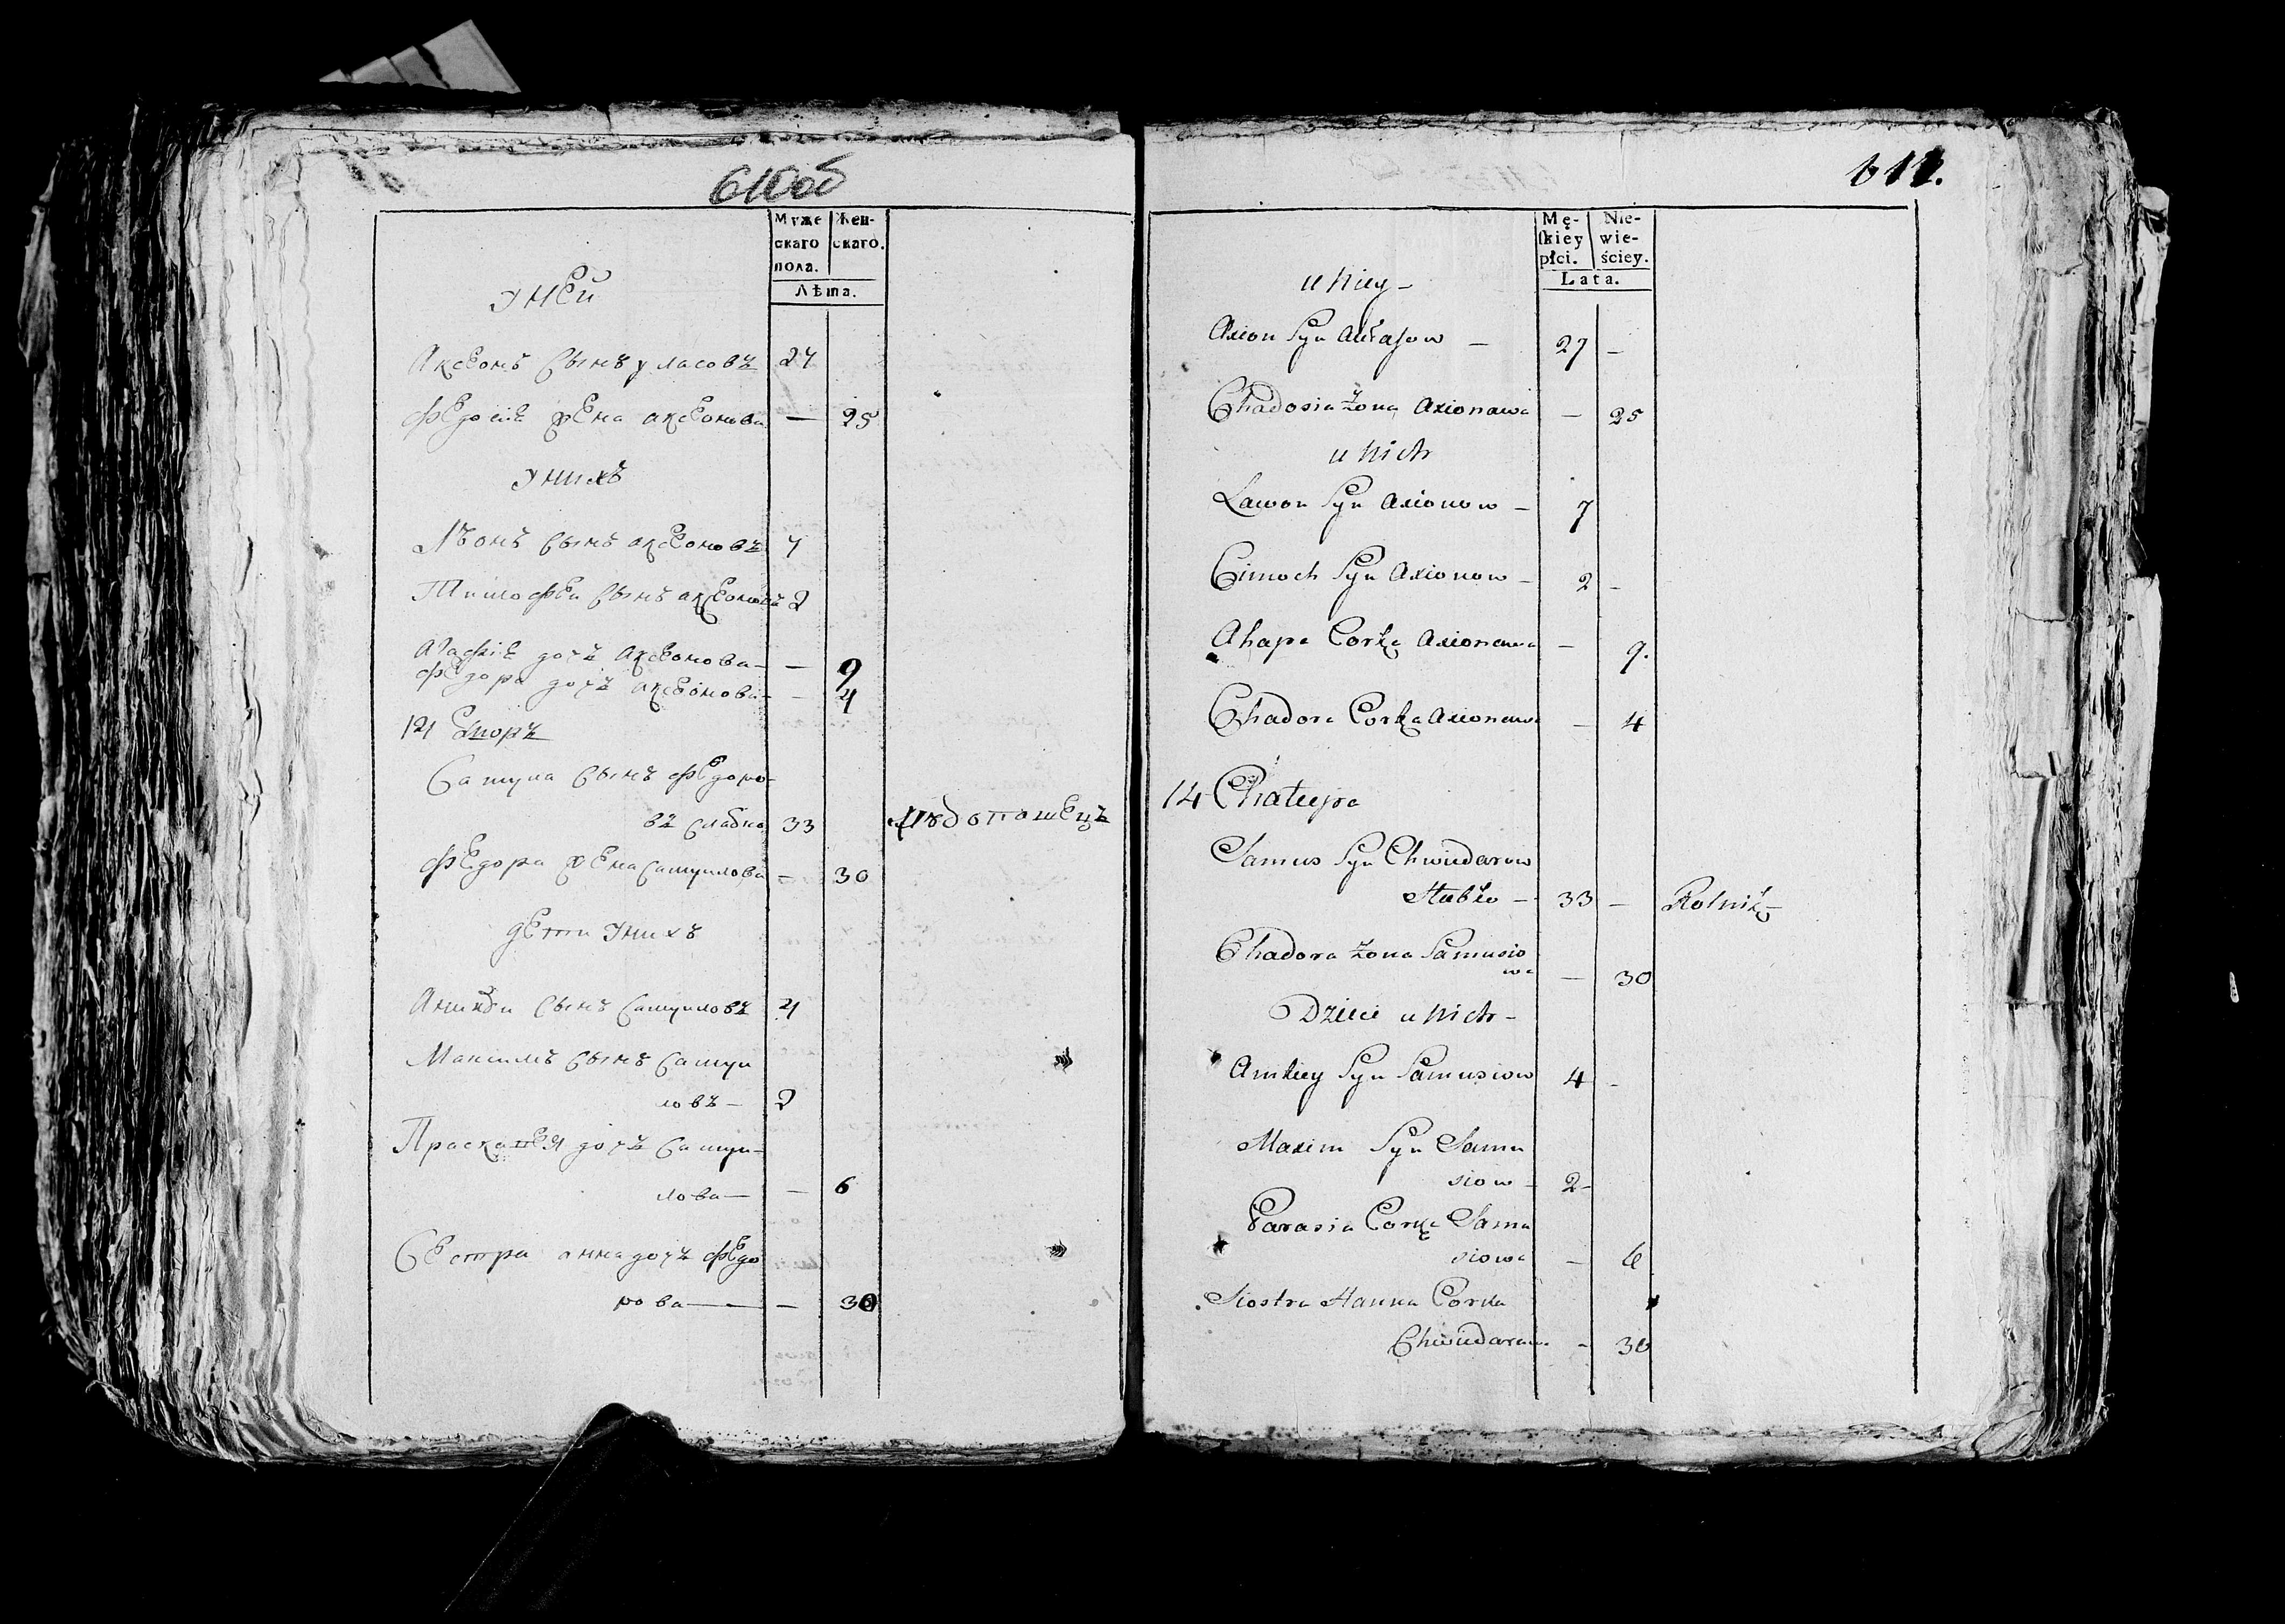 610об
Муже
скаго
пола.
Жен-
скаго.
Лѣта.
У ней
Аксенъ сынъ уласовъ 27
Федосiя жена аксенова — 25
У нихъ
Лѣонъ сынъ аксеновъ 7
Тимофеи сынъ аксеновъ 2
Агафiя дочь Аксенова — — 9
Федора дочь аксенова — — 4
Самуила сынъ Федоро-
въ 33
Федора жена Самуилова — 30
дети у нихъ
Аникѣи сынъ Самуиловъ 4
Максимъ сынъ Самуи
ловъ — 2
Прасковея дочь Самуи-
лова — — 6
Сестра анна дочь Федо
рова — — 30
611.
Mę-
ſkiey
płci.
Nie-
wie-
ściey.
Lata.
u Niey —
Axion Syn — 27 —
Chadosia żona Axionawa — 25
u Nich
Lawon Syn Axionow — 7
Cimoch Syn Axionow — 2 —
Ahapa Corka Axionawa — 9.
Chadora Corka Axionawa — 4
14 Chatupa
Samus Syn Chwiedarow
33 — Rolnik
Chadora żona Samusio
wa — 30
Dzieci u Nich —
Anikiey Syn Samusiow 4 —
Maxim Syn Samu
siow — 2 —
Parasia Corka Samu
siowa — 6
Siostra Hanna Corka
Chwiedarowa — 30